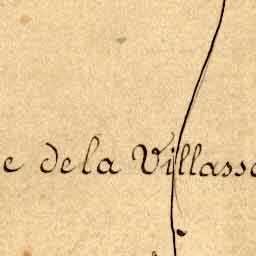 e de la Villass